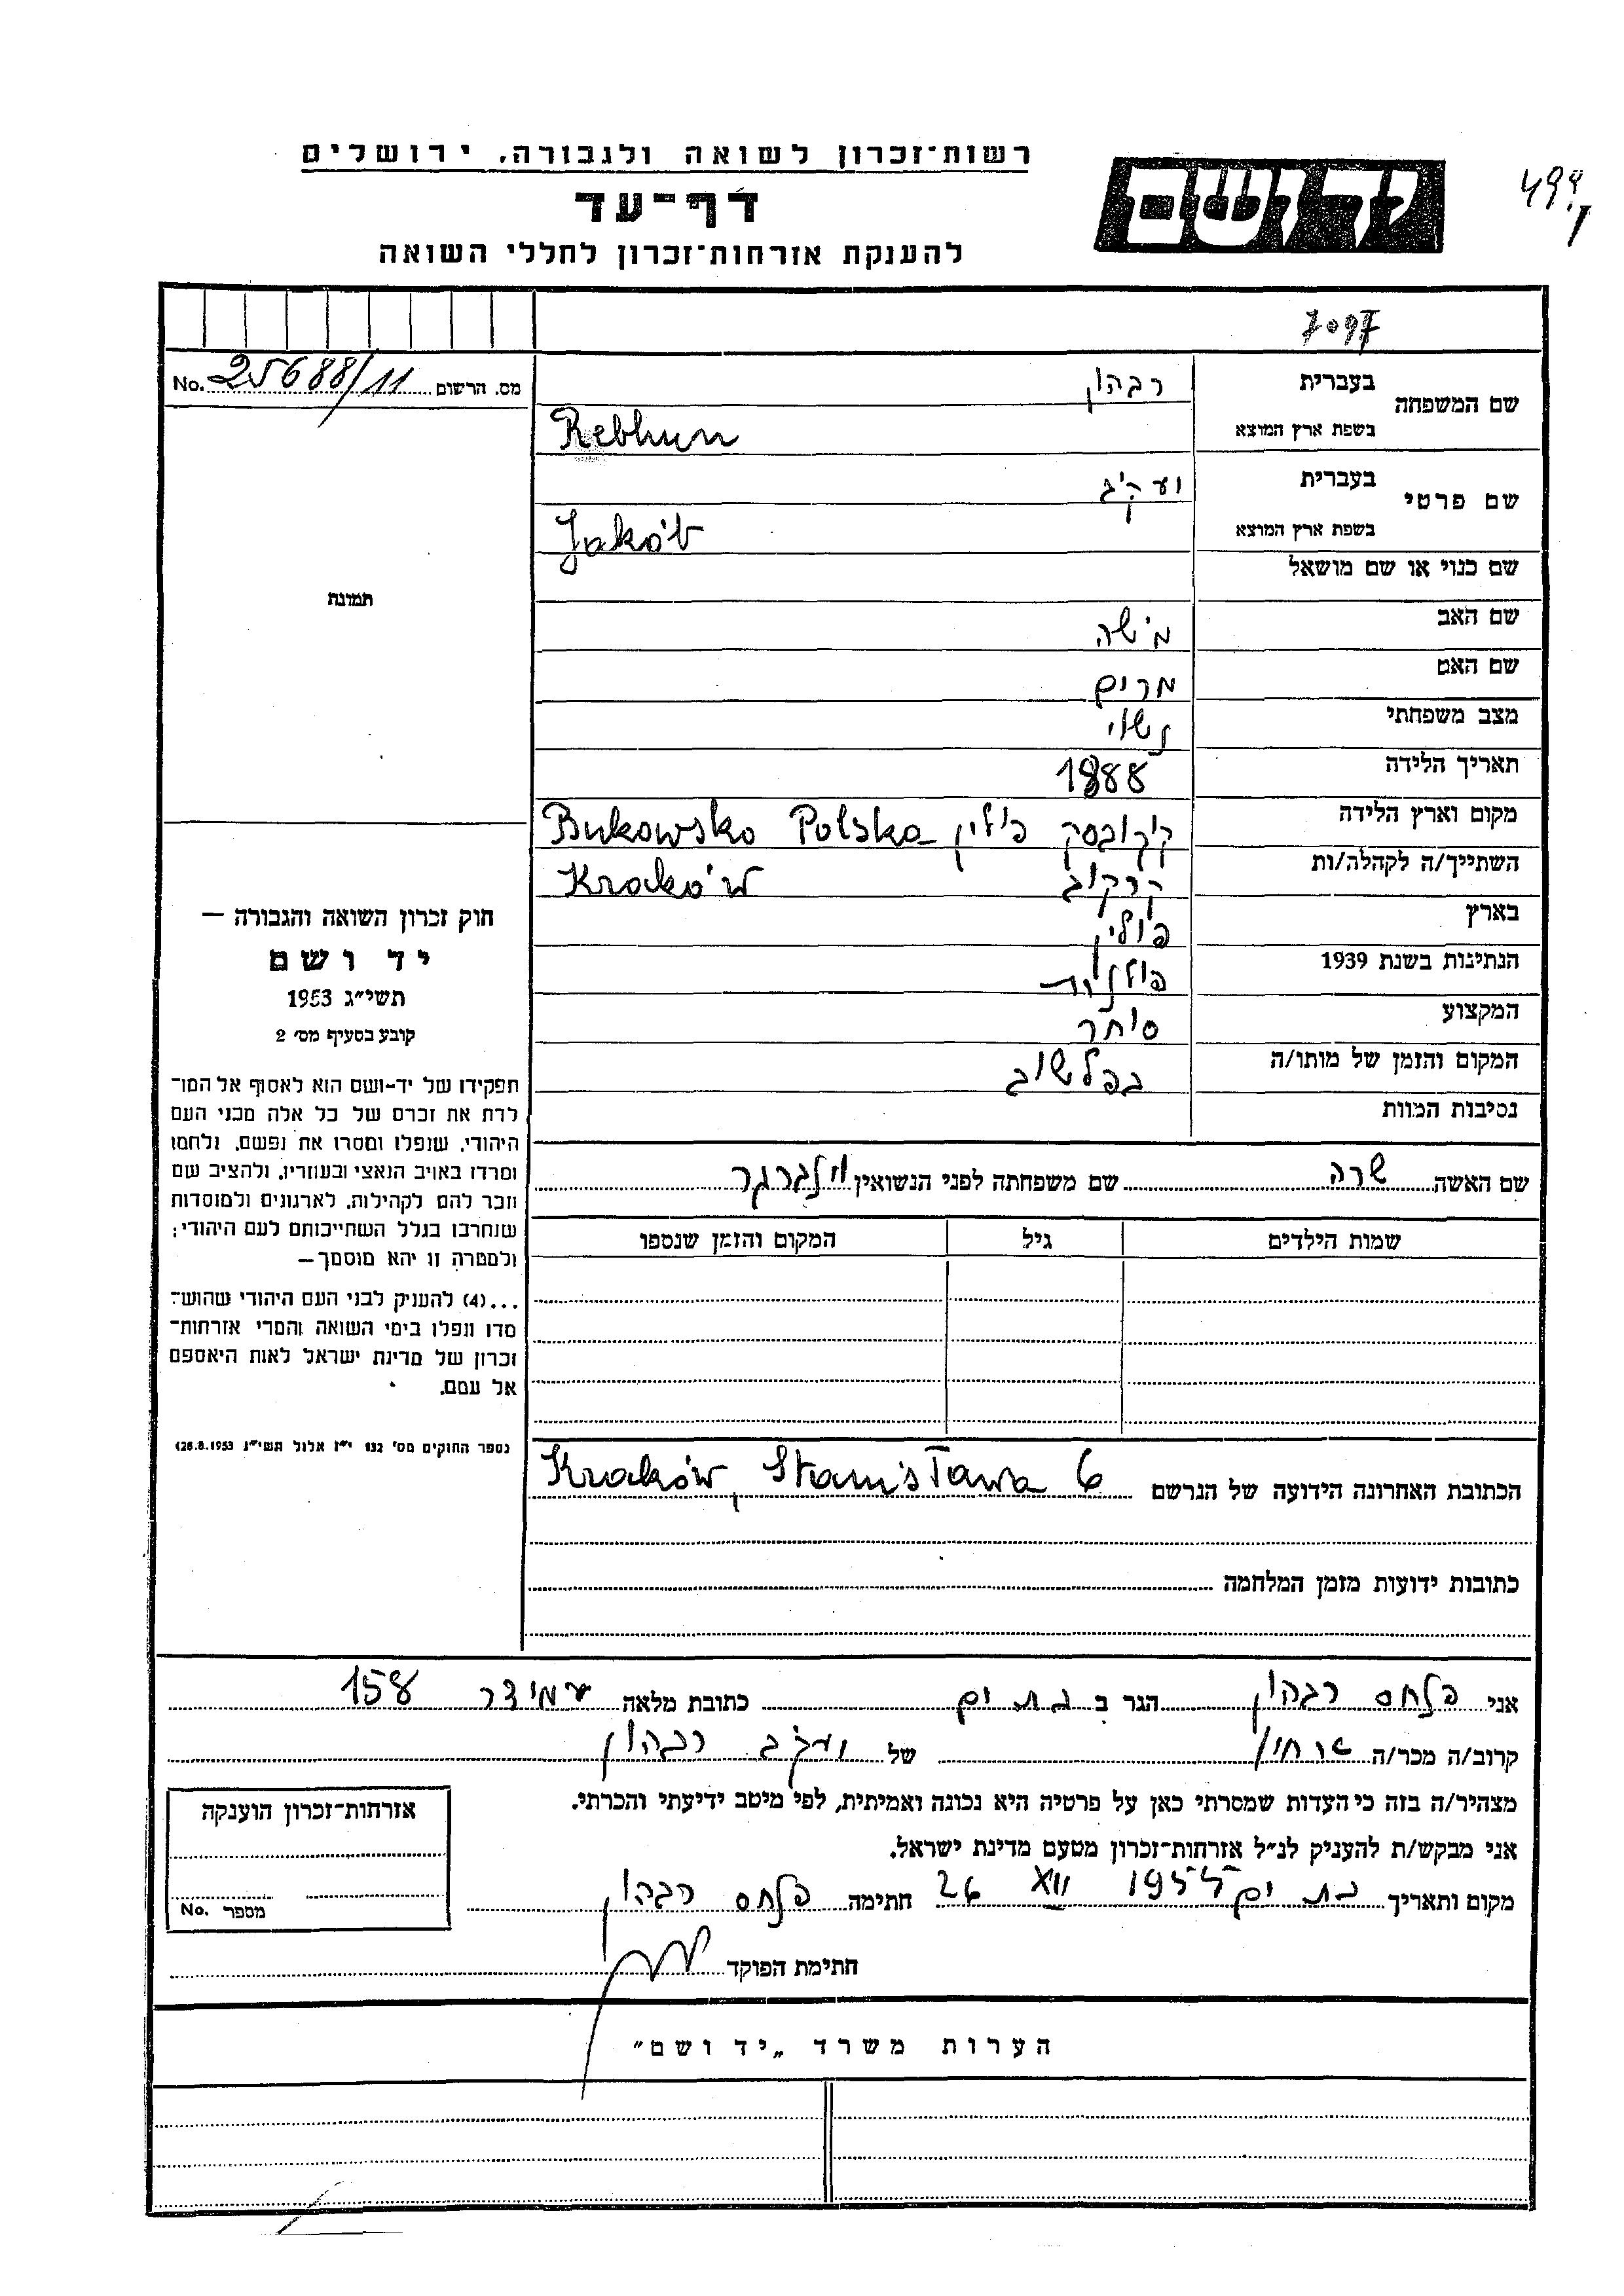 רשות־זכרון לשואה ולגבורה, ירושלים
דף־עד
להענקת אזרחות־זכרון לחללי השואה
יד ושם
499
7097
מס. הרשום No. 25688/11
שם המשפחה
בעברית רבהון
בשפת ארץ המוצא Rebhun
שם פרטי
בעברית יעקב
בשפת ארץ המוצא Jakób
שם כנוי או שם מושאל
שם האב משה
שם האם מרים
מצב משפחתי נשוי
תאריך הלידה 1888
מקום וארץ הלידה פולין Bukowsko Polska
השתייך/ה לקהלה/ות קרקוב Kraków
בארץ פולין
הנתינות בשנת 1939 פולנית
המקצוע סוחר
המקום והזמן של מותו/ה בפלשוב
נסיבות המוות
תמונה
חוק זכרון השואה והגבורה —
יד ושם
תשי״ג 1953
קובע בסעיף מס׳ 2
תפקידו של יד-ושם הוא לאסוף אל המו־
לדת את זכרם של כל אלה מבני העם
היהודי, שנפלו ומסרו את נפשם, נלחמו
ומרדו באויב הנאצי ובעוזריו, ולהציב שם
וזכר להם לקהילות, לארגונים ולמוסדות
שנחרבו בגלל השתייכותם לעם היהודי;
ולמטרה זו יהא מוסמך—
...(4) להעניק לבני העם היהודי שהוש־
מדו ונפלו בימי השואה והמרי אזרחות־
זכרון של מדינת ישראל לאות היאספם
אל עמם.
(ספר החוקים מס׳ 132 י״ז אלול תשי״ג 28.8.1953)
שם האשה שרה שם משפחתה לפני הנשואין
שמות הילדים גיל המקום והזמן שנספו
הכתובת האחרונה הידועה של הנרשם Kraków, Stanisława 6
כתובות ידועות מזמן המלחמה
אני פנחס רבהון הגר ב בת ים כתובת מלאה עמידר 158
קרוב/ה מכר/ה של יעקב רבהון
מצהיר/ה בזה כי העדות שמסרתי כאן על פרטיה היא נכונה ואמיתית, לפי מיטב ידיעתי והכרתי.
אני מבקש/ת להעניק לנ״ל אזרחות־זכרון מטעם מדינת ישראל.
מקום ותאריך בת ים 1955 XII 26 חתימה פנחס רבהון
חתימת הפוקד
אזרחות־זכרון הוענקה
מספר No.
הערות משרד „יד ושם״